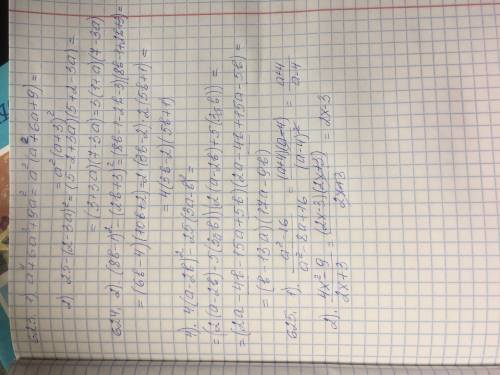 623. 1) a⁴+6a³+9a²=a²(a²+6a+9)=
=a²(a+3)²
2) 25-(2-3a)²=(5-2+3a)(5+2-3a)=
=(3+3a)(7-3a)=3(1+a)(7-3a)
624. 2) (8b-1)²-(2b+3)²=(8b-1-2b-3)(8b-1+2b+3)=
=(6b-4)(10b+2)=2(3b-2)·2(5b+1)=
=4(3b-2)(5b+1)
4). 4(a-2b)²-25(3a-b)²=
=(2(a-2b)-5(3a-b))(2(a-2b)+5(3a-b))=
=(2a-4b-15a+5b)(2a-4b+15a-5b)=
=(b-13a)(17a-9b)
625. 1). a²-16/a²-8a+16=(a+4)(a-4)/(a-4)²=a+4/a-4
2). 4x²-9/2x+3=(2x-3)(2x+3)/2x+3=2x-3